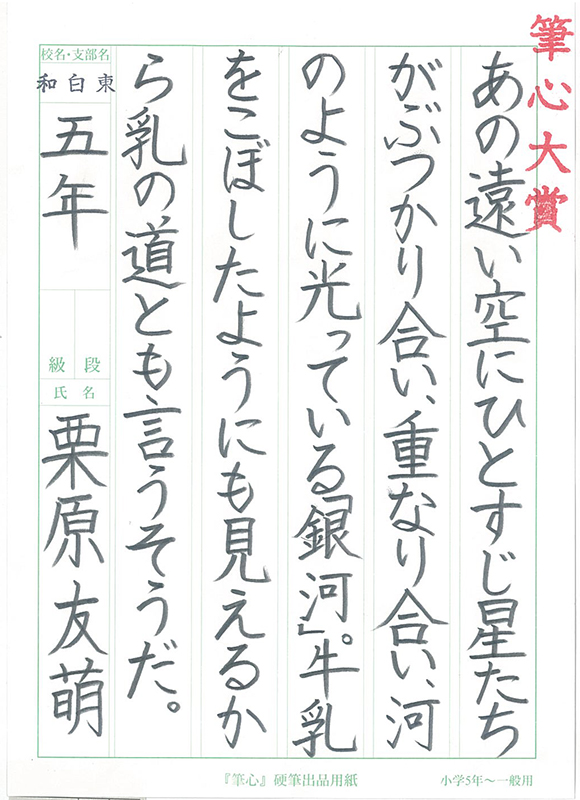 筆心大賞
あの遠い空にひとすじ星たち
がぶつかり合い、重なり合い、河
のように光っている「銀河」。牛乳
をこぼしたようにも見えるか
ら乳の道とも言うそうだ。
校名・支部名
和白東
五年
級 段
氏名
栗原友萌
『筆心』硬筆出品用紙
小学5年〜一般用